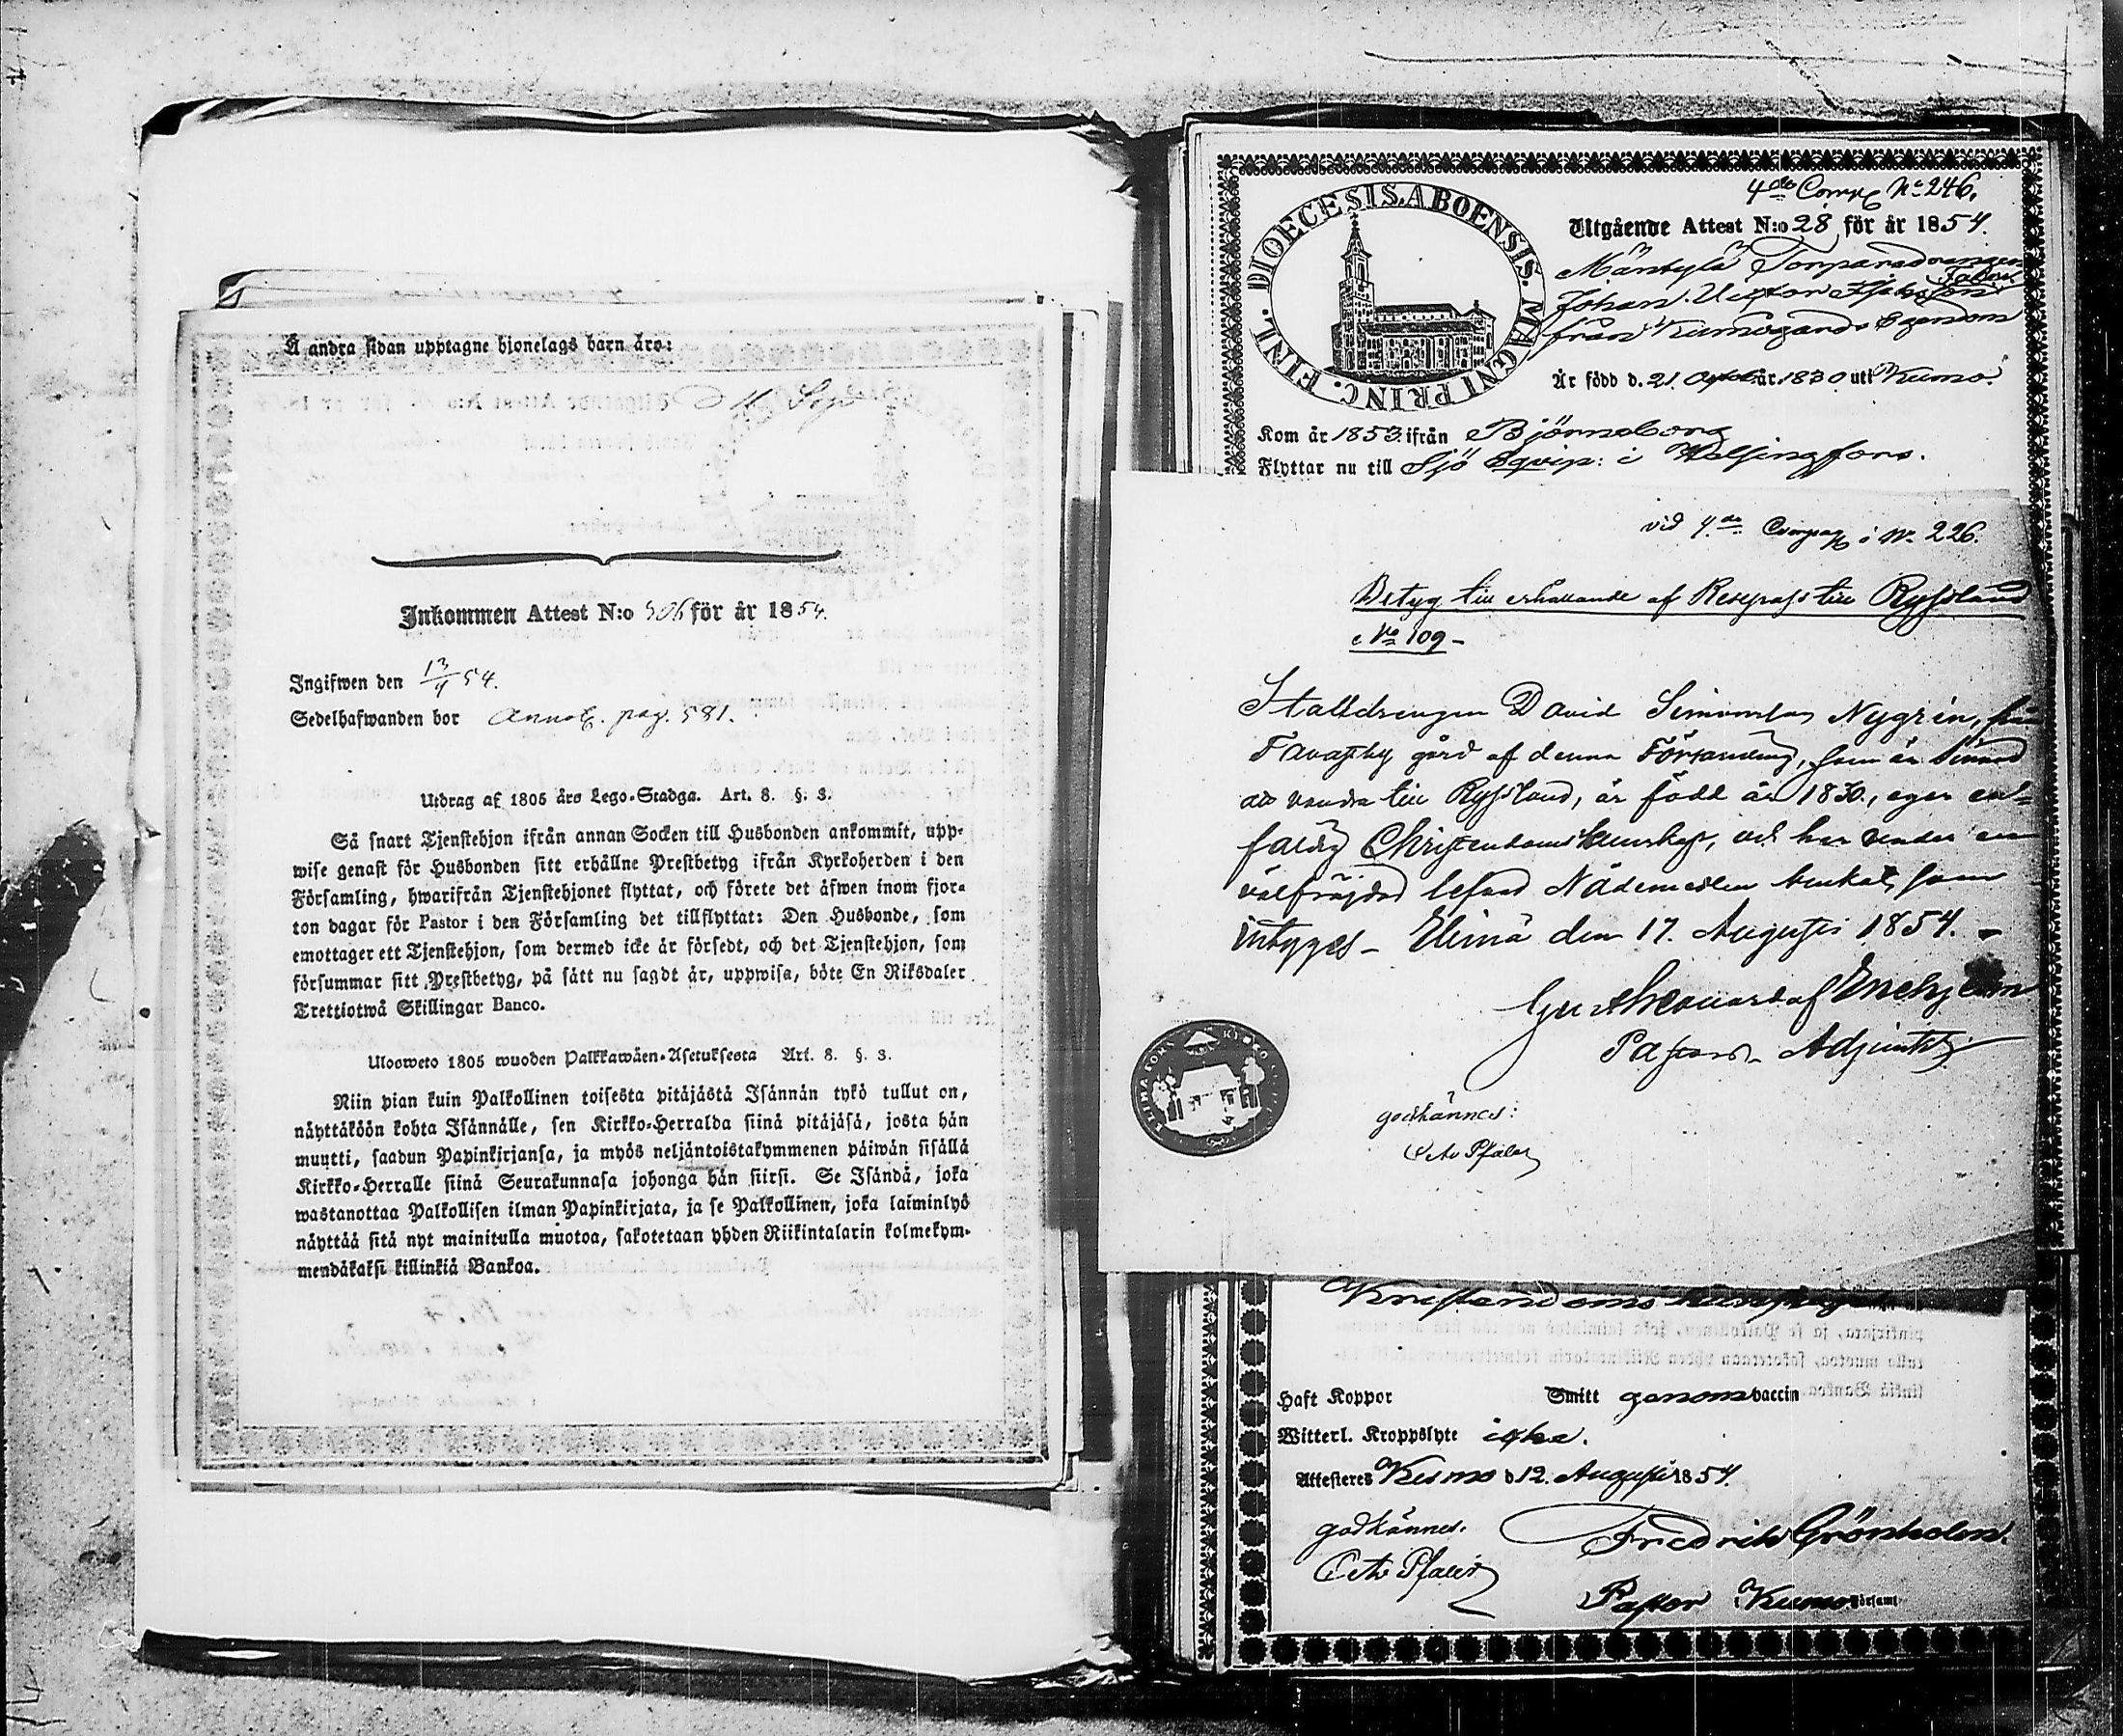 Å andra sidan upptagne hjonelags barn äro:
Inkommen Attest N:o 506 för år 1854.
Ingifwen den 13/9 54.
Sedelhafwanden bor Annot. pag. 581.
Utdrag af 1805 års Lego-Stadga. Art. 8. §. 3.
Så snart Tjenstehjon ifrån annan Socken till Husbonden ankommit, upp-
wise genast för Husbonden sitt erhållne Prestbetyg ifrån Kyrkoherden i den
Församling, hwarifrån Tjenstehjonet flyttat, och förete det äfwen inom fjor-
ton dagar för Pastor i den Församling det tillflyttat: Den Husbonde, som
emottager ett Tjenstehjon, som dermed icke är försedt, och det Tjenstehjon, som
försummar sitt Prestbetyg, på sätt nu sagdt är, uppwisa, böte En Riksdaler
Trettiotwå Skillingar Banco.
Ulosweto 1805 wuoden Palkkawäen-Asetuksesta Art. 8. §. 3.
Niin pian kuin Palkollinen toisesta pitäjästä Isännän tykö tullut on,
näyttäköön kohta Isännälle, sen Kirkko-Herralda siinä pitäjäsä, josta hän
muutti, saadun Papinkirjansa, ja myös neljäntoistakymmenen päiwän sisällä
Kirkko-Herralle siinä Seurakunnasa johonga hän siirsi. Se Isändä, joka
wastanottaa Palkollisen ilman Papinkirjata, ja se Palkollinen, joka laiminlyö
näyttää sitä nyt mainitulla muotoa, sakotetaan yhden Riikintalarin kolmekym-
mendäkaksi killinkiä Bankoa.
4de Comp. No 246.
DIOECESIS. ABOENSIS. MAGNI PRINC. FINL.
Utgående Attest N:o 28 för år 1854.
Mäntylä Torparedrängen
Johan Victor
från Kumogårds Egendom
Är född d. 21 år 1830 uti Kumo.
Kom år 1853 ifrån Björneborg
Flyttar nu till Sjö Eqvip: i Helsingfors.
vid 4de Compag i No 226.
Betyg till erhållande af Resepass till Ryssland
No 109 -
Stalldrengen David Simonsson Nygrén, från
Tavastby gård af denna Församling, som är sinnad
att vandra till Ryssland, är född år 1830, eger en-
faldig Christendoms kunskap, och har under en
välfräjdad lefnad Nådemedlen brukat, som
intygges - Elimä den 17. Augusti 1854. -
af Enehjelm
Pastors-Adjunkt
godkännes:
Octv Pfaler
Kristendoms kunskap
Haft Koppor Smitt genom vaccin
Witterl. Kroppslyte icke.
Attesteres Kumo d 12. Augusti 1854.
godkännes.
Octv Pfaler
Fredrik Grönholm.
Pastor i Kumo Församl